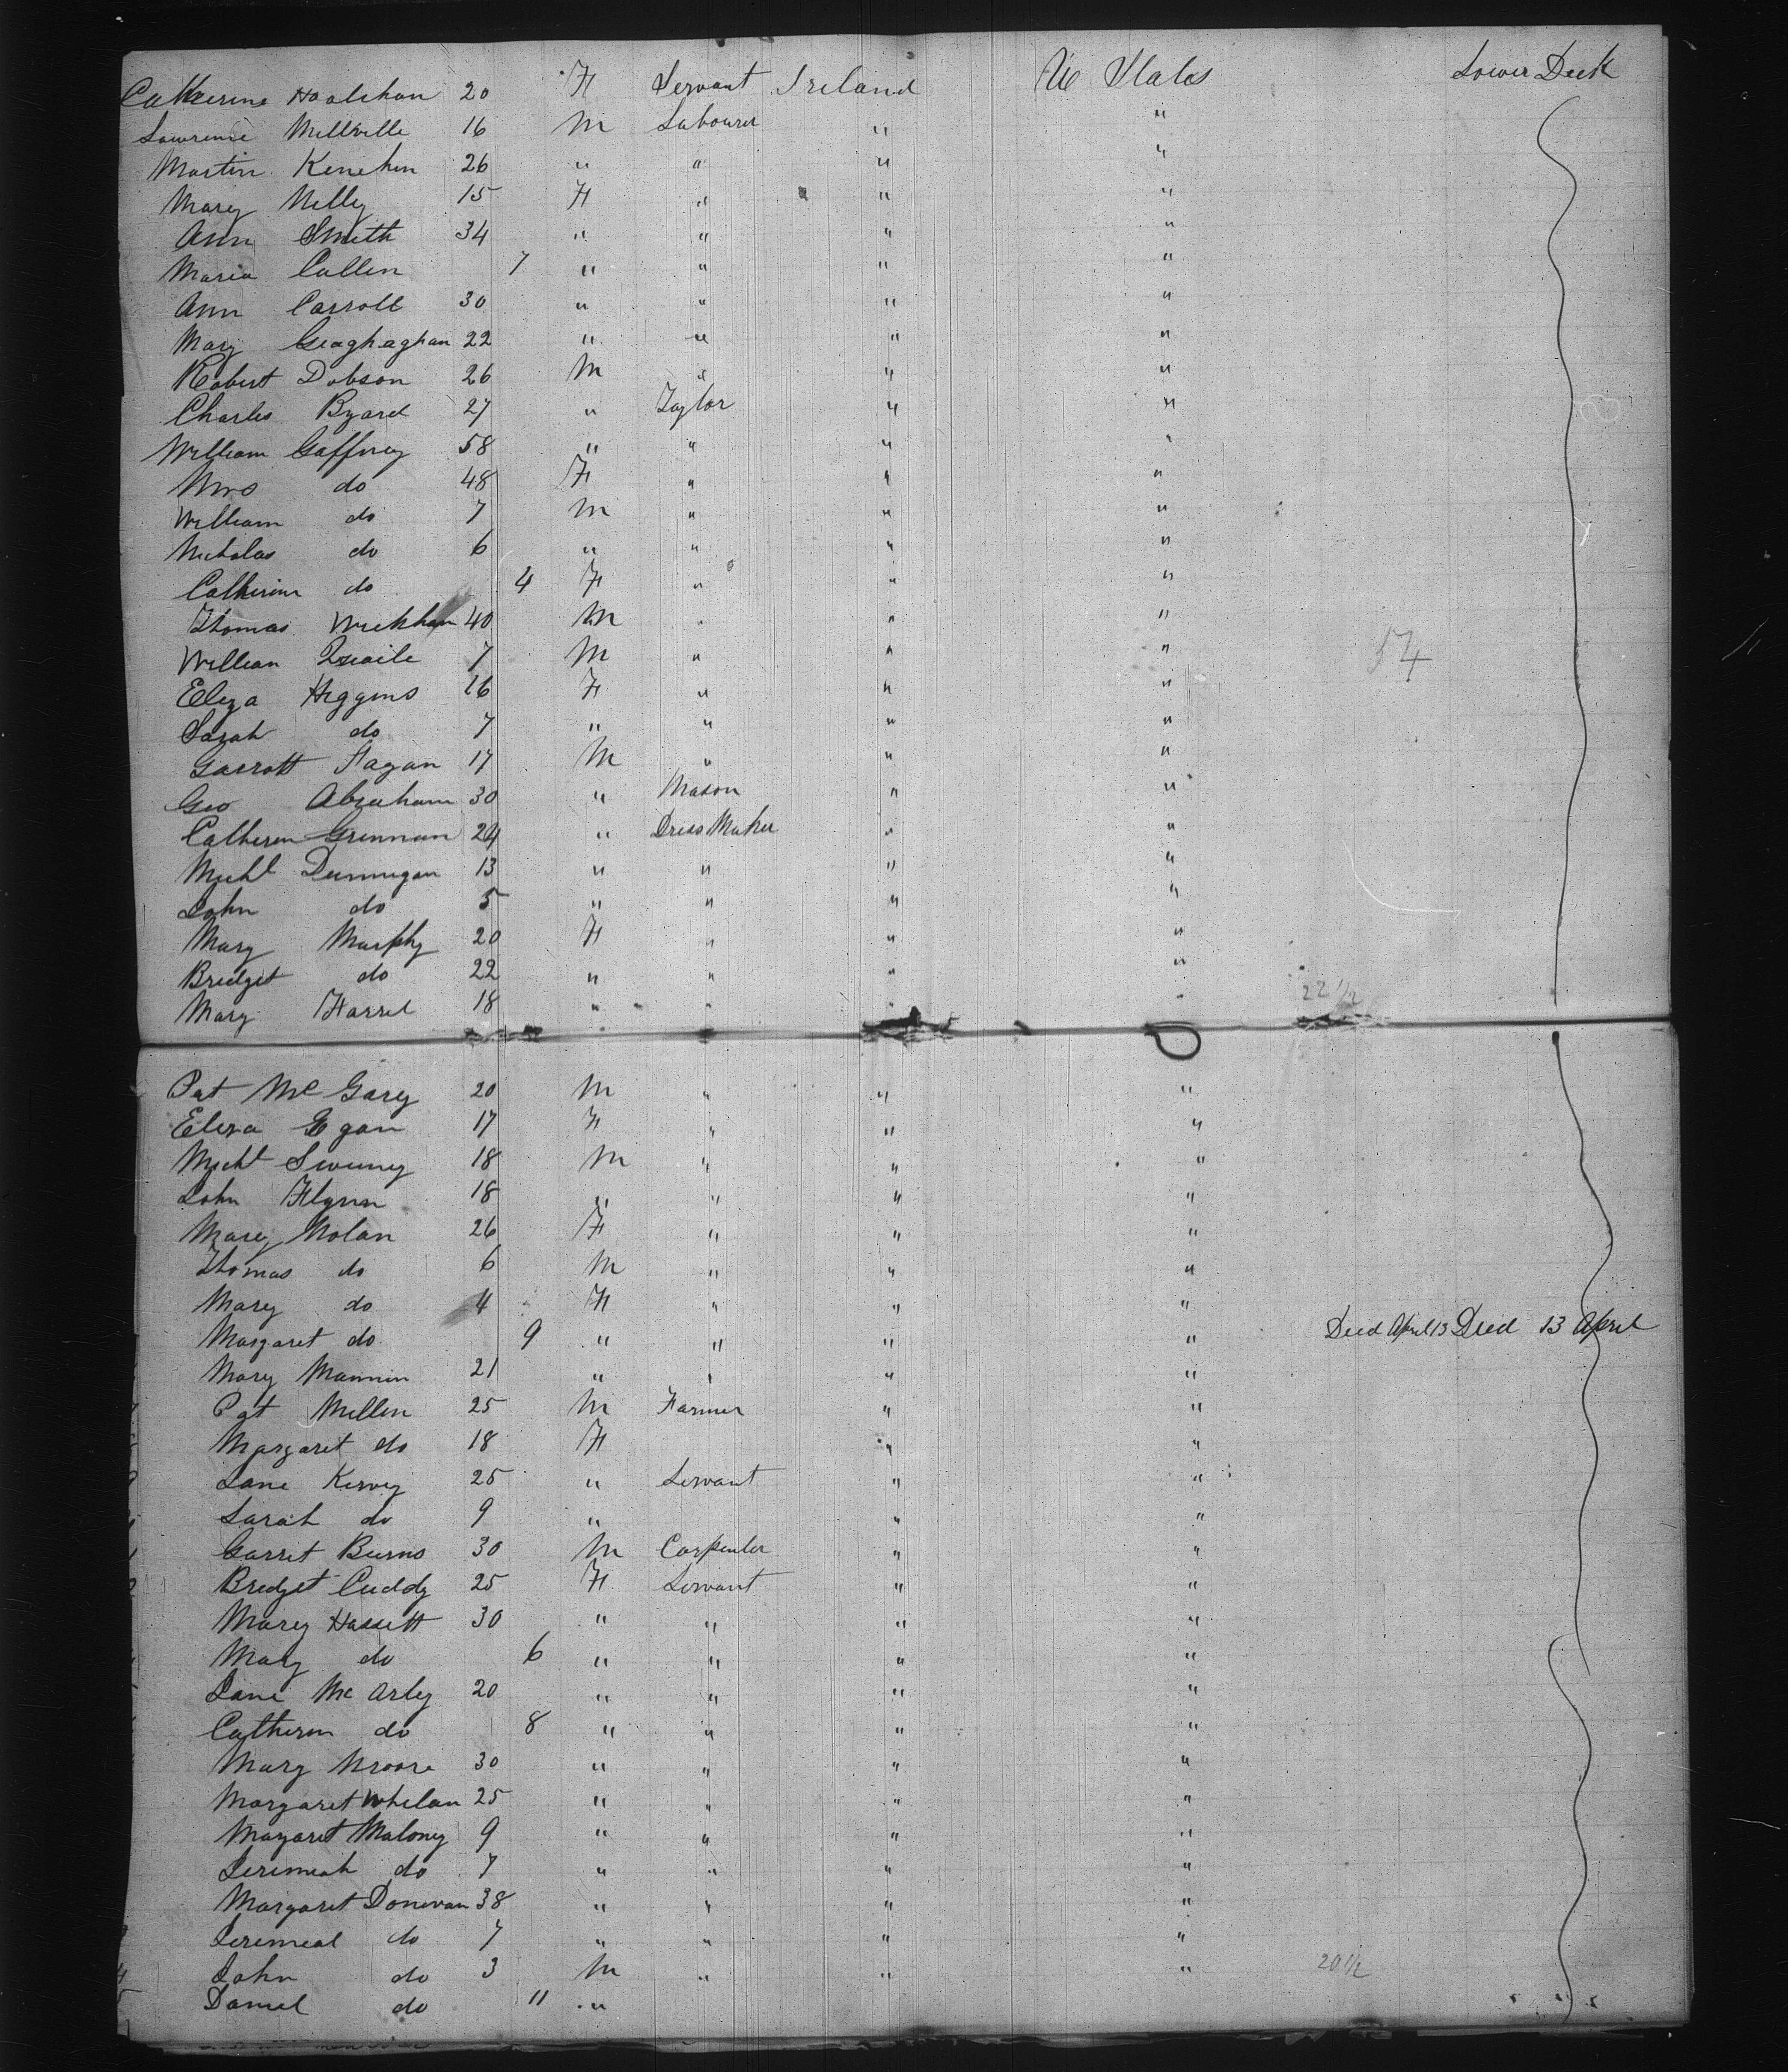 Catherine Hoolihan 20 F Servant Ireland U States Lower Deck
Lawrence Millville 16 M Labourer " "
Martin Kenehen 26 " " " "
Mary Nelly 15 F " " "
Ann Smith 34 " " " "
Maria Cullen 7 " " " "
Ann Carroll 30 " " " "
Mary Geaghaghan 22 " " " "
Robert Dobson 26 M " " "
Charles Byard 27 " Taylor " "
William Gaffney 58 " " " "
Mrs do 48 F " " "
William do 7 M " " "
Nicholas do 6 " " " "
Catherine do 4 F " " "
Thomas Wickham 40 M " " "
William Quaile 7 M " " " 54
Eliza Higgins 16 F " " "
Sarah do 7 " " " "
Garrott Fagan 17 M " " "
Geo Abraham 30 " Mason " "
Catheren Grennan 24 " Dress Maker " "
Michl Dunnugan 13 " " " "
John do 5 " " " "
Mary Murphy 20 F " " "
Bridget do 22 " " " "
Mary Farrel 18 " " " " 22 1/2
Pat Mc Gary 20 M " " "
Eliza Egan 17 F " " "
Michl Sweeny 18 M " " "
John Flynn 18 " " " "
Mary Nolan 26 F " " "
Thomas do 6 M " " "
Mary do 4 F " " "
Margaret do 9 " " " " Died April 13 Died 13 April
Mary Mannin 21 " " " "
Pat Mullen 25 M Farmer " "
Margaret do 18 F " "
Jane Kervey 25 " Servant " "
Sarah do 9 " " "
Garret Burns 30 M Carpenter " "
Bridget Cuddy 25 F Servant " "
Mary Hassett 30 " " " "
Mary do 6 " " " "
Jane Mc Arley 20 " " " "
Catheren do 8 " " " "
Mary Moore 30 " " " "
Margaret Whelan 25 " " " "
Margaret Malony 9 " " " "
Jeremeah do 7 " " " "
Margaret Donevan 38 " " " "
Jeremeal do 7 " " " "
John do 3 M " " " 20 1/2
Daniel do 11 "